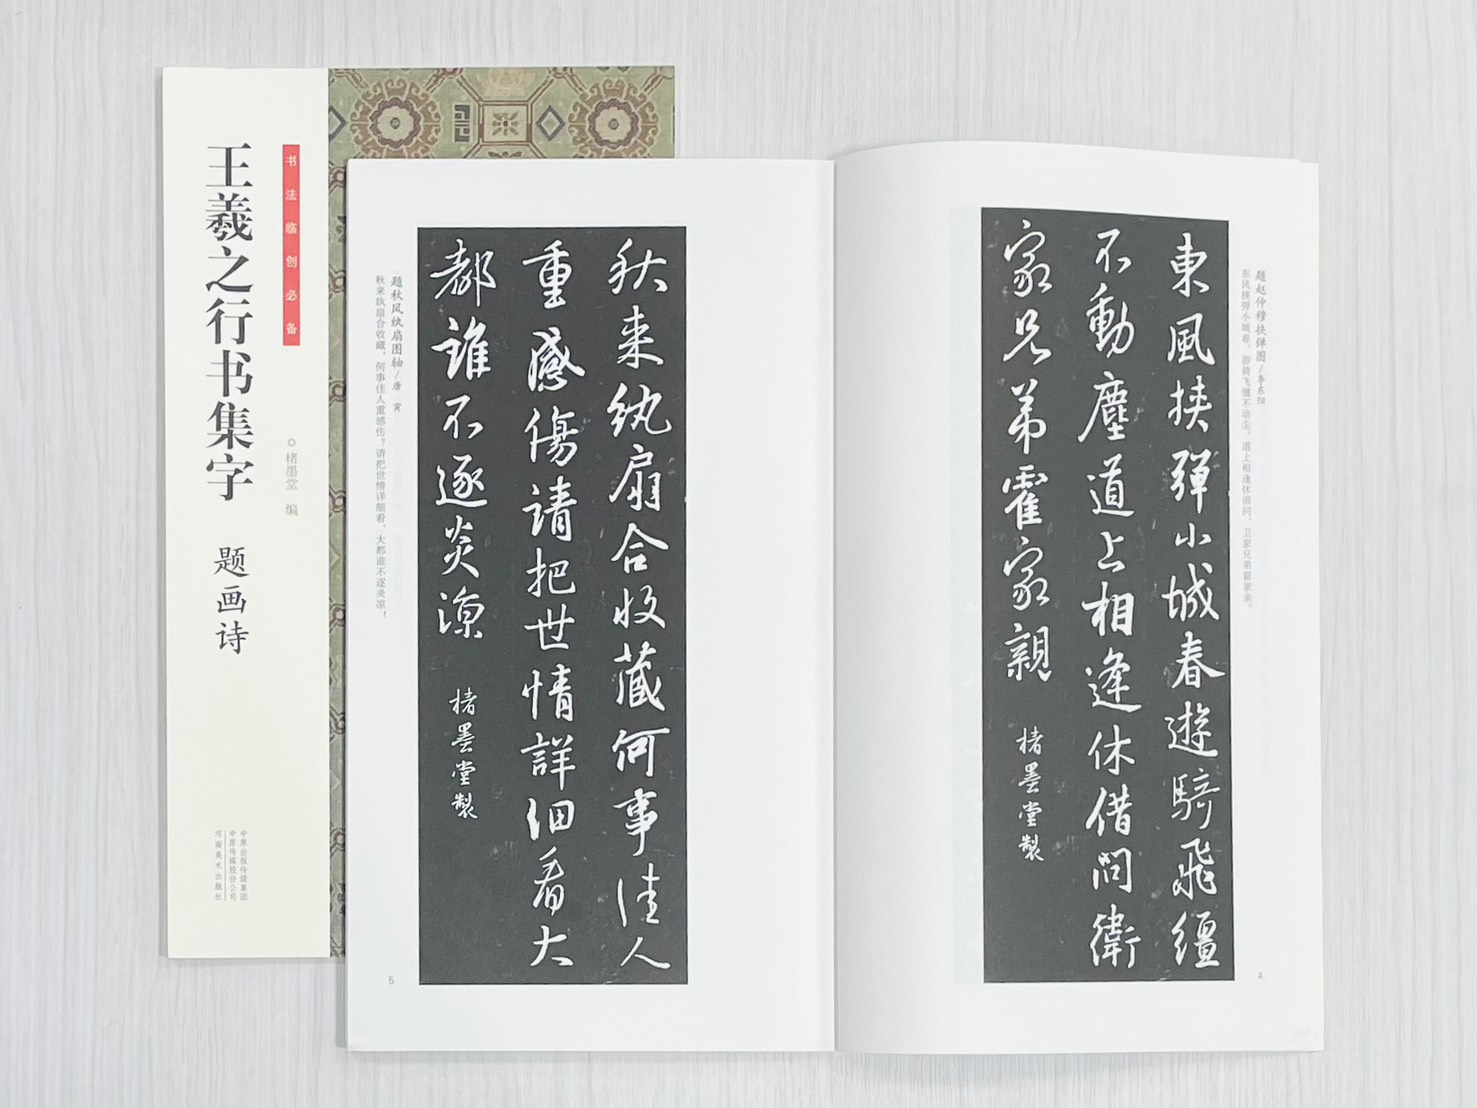 书法临创必备
王羲之行书集字 题画诗
◎楮墨堂 编
中原出版传媒集团
中原传媒股份公司
河南美术出版社
题赵仲穆挟弹图/李东阳
东风挟弹小城春，游骑飞缰不动尘。道上相逢休借问，卫家兄弟霍家亲。
東風挟弾小城春遊騎飛繮
不動塵道上相逢休借問衛
家兄弟霍家親 楮墨堂製
4
题秋风纨扇图轴/唐 寅
秋来纨扇合收藏，何事佳人重感伤？请把世情详细看，大都谁不逐炎凉！
秋来纨扇合收藏何事佳人
重感傷請把世情詳細看大
都誰不逐炎凉 楮墨堂製
5